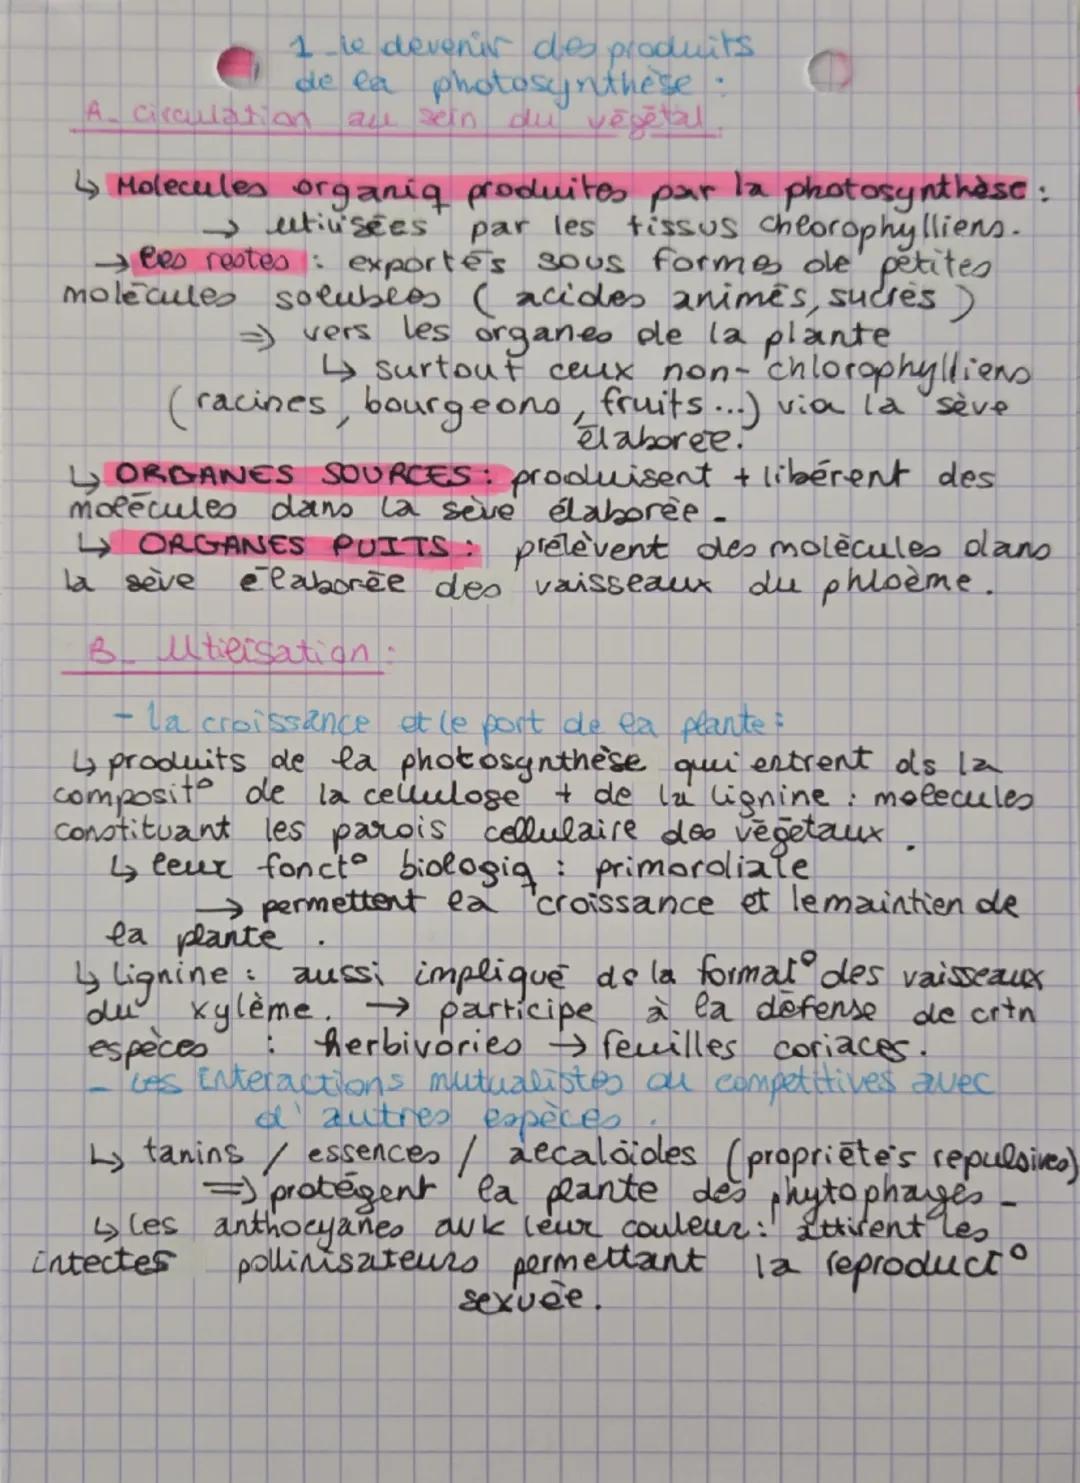 1 - le devenir des produits
de la photosynthèse :
A - Circulation au sein du végétal.
↳ Molecules organiq produites par la photosynthèse :
→ utilisées par les tissus chlorophylliens.
→ les restes : exportés sous formes de petites
molécules solubles (acides animés, sucrès)
⇒ vers les organes de la plante
↳ surtout ceux non-chlorophylliens
(racines, bourgeons, fruits...) via la sève
élaborée.
↳ ORGANES SOURCES : produisent + libérent des
molécules dans la sève élaborée.
↳ ORGANES PUITS : prélèvent des molécules dans
la sève élaborée des vaisseaux du phloème.
B - Utilisation :
- la croissance et le port de la plante :
↳ produits de la photosynthèse qui entrent ds la
composit° de la cellulose + de la lignine : molecules
constituant les parois cellulaire des végétaux.
↳ leur fonct° biologiq : primordiale
→ permettent la croissance et le maintien de
la plante.
↳ lignine : aussi impliqué ds la format° des vaisseaux
du xylème. → participe à la défense de crtn
espèces : herbivories → feuilles coriaces.
- Les interactions mutualistes ou compétitives avec
d'autres espèces.
↳ tanins / essences / alcaloïdes (propriétés repulsives)
⇒ protégent la plante des phytophages -
↳ les anthocyanes avk leur couleur : attirent les
intectes pollinisateurs permettant la reproduct°
sexuée.